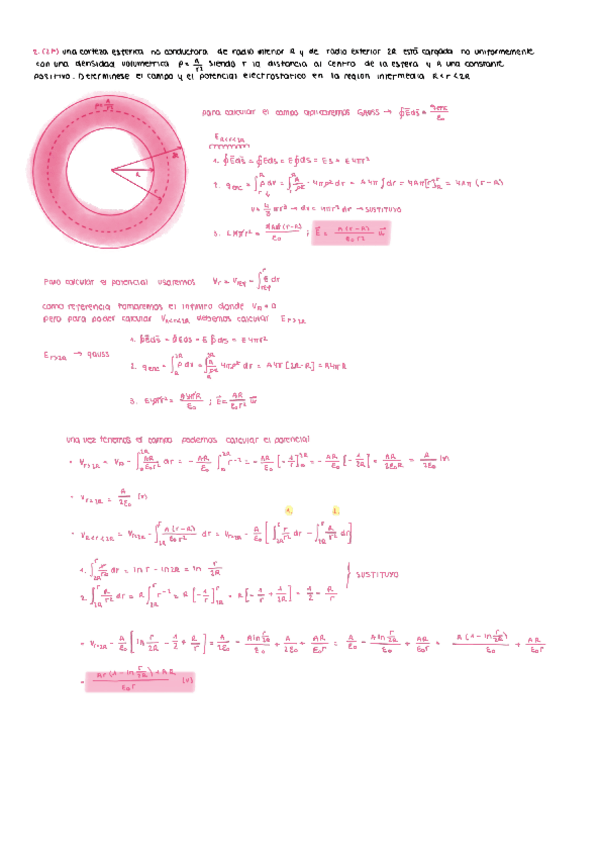 2. (2P) una corteza esférica no conductora de radio interior R y de radio exterior 2R está cargada no uniformemente
con una densidad volumétrica ρ = A/r² siendo r la distancia al centro de la esfera y A una constante
positiva. Determínese el campo y el potencial electrostático en la región intermedia R<r<2R
ρ = A/r²
2R
R
r
para calcular el campo aplicaremos GAUSS → ∮Ēds̄ = qenc/ε₀
E R<r<2R
1. ∮Ēds̄ = ∮Eds = E∮ds = ES = E4πr²
2. qenc = ∫ρdv = ∫A/r² · 4πr²dr = A4π∫dr = 4Aπ[r] = 4Aπ(r-R)
v = 4/3 πr³ → dv = 4πr²dr → SUSTITUYO
3. E4πr² = 4Aπ(r-R)/ε₀ ; Ē = A(r-R)/ε₀r²
para calcular el potencial usaremos Vr = Vref - ∫E dr
como referencia tomaremos el infinito donde V∞ = 0
pero para poder calcular V R<r<2R debemos calcular E r>2R
E r>2R → gauss
1. ∮Ēds̄ = ∮Eds = E∮ds = E4πr²
2. qenc = ∫ρdv = ∫A/r² 4πr²dr = A4π[2R-R] = A4πR
3. E4πr² = A4πR/ε₀ ; Ē = AR/ε₀r²
una vez tenemos el campo podemos calcular el potencial
- Vr>2R = V∞ - ∫AR/ε₀r² dr = -AR/ε₀ ∫r⁻² = -AR/ε₀ [-1/r] = -AR/ε₀ [-1/2R] = AR/2ε₀R = A/2ε₀
- Vr=2R = A/2ε₀ (V)
1. 2.
- V R<r<2R = Vr=2R - ∫A(r-R)/ε₀r² dr = Vr=2R - A/ε₀ [∫r/r² dr - ∫R/r² dr]
1. ∫r/r² dr = ln r - ln 2R = ln r/2R
2. ∫R/r² dr = R∫r⁻² = R[-1/r] = R[-1/r + 1/2R] = 1/2 - R/r
SUSTITUYO
= Vr=2R - A/ε₀ [ln r/2R - 1/2 + R/r] = A/2ε₀ - A ln r/2R /ε₀ + A/2ε₀ + AR/ε₀r = A/ε₀ - A ln r/2R /ε₀ + AR/ε₀r = A(1 - ln r/2R)/ε₀ + AR/ε₀r
= Ar(1 - ln r/2R) + AR / ε₀r (V)